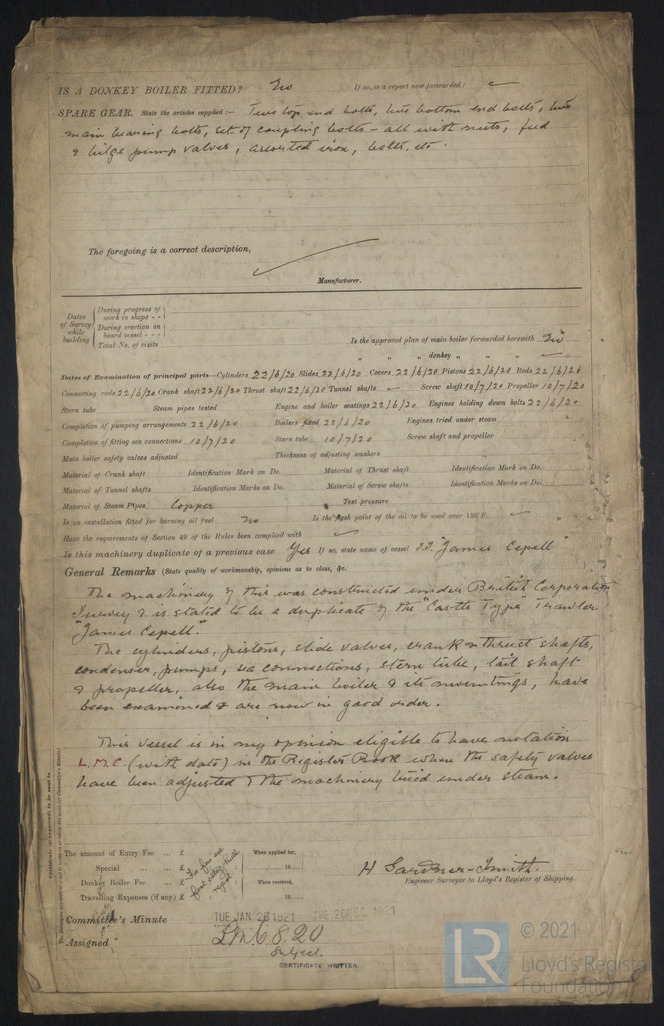 IS A DONKEY BOILER FITTED? No If so, is a report now forwarded?
SPARE GEAR. State the articles supplied:— Two top end bolts, two bottom end bolts, two
main bearing bolts, set of coupling bolts – all with nuts, feed
& bilge pump valves, assorted iron, bolts. etc.
The foregoing is a correct description,
Manufacturer.
Dates of Survey while building
During progress of work in shops - -
During erection on board vessel - - -
Total No. of visits
Is the approved plan of main boiler forwarded herewith No
" " " donkey " " "
Dates of Examination of principal parts—Cylinders 22/6/20 Slides 22/6/20 Covers 22/6/20 Pistons 22/6/20 Rods 22/6/20
Connecting rods 22/6/20 Crank shaft 22/6/20 Thrust shaft 22/6/20 Tunnel shafts Screw shaft 10/7/20 Propeller 10/7/20
Stern tube Steam pipes tested Engine and boiler seatings 22/6/20 Engines holding down bolts 22/6/20
Completion of pumping arrangements 22/6/20 Boilers fixed 22/6/20 Engines tried under steam
Completion of fitting sea connections 10/7/20 Stern tube 10/7/20 Screw shaft and propeller
Main boiler safety valves adjusted Thickness of adjusting washers
Material of Crank shaft Identification Mark on Do. Material of Thrust shaft Identification Mark on Do.
Material of Tunnel shafts Identification Marks on Do. Material of Screw shafts Identification Marks on Do.
Material of Steam Pipes Copper Test pressure
Is an installation fitted for burning oil fuel No Is the flash point of the oil to be used over 150°F.
Have the requirements of Section 49 of the Rules been complied with
Is this machinery duplicate of a previous case Yes If so, state name of vessel "James Cepell"
General Remarks (State quality of workmanship, opinions as to class, &c.
The machinery of this was constructed under British Corporation
Survey & is stated to be a duplicate of the "Castle Type Trawler
"James Cepell."
The cylinders, pistons, slide valves, crank & thrust shafts,
condenser, pumps, sea connections, stern tube, tail shaft
& propeller, also the main boiler & its mountings, have
been examined & are now in good order.
This vessel is in my opinion eligible to have notation
L.M.C (with date) in the Register Book when the safety valves
have been adjusted & the machinery tried under steam.
The amount of Entry Fee ... £
Special ... ... £
Donkey Boiler Fee ... £
Travelling Expenses (if any) £
When applied for,
19
When received,
19
H Gardner-Smith.
Engineer Surveyor to Lloyd's Register of Shipping.
Committee's Minute
TUE JAN 1921
Assigned LMC 8.20
Subject
CERTIFICATE WRITTEN
LR
© 2021
Lloyd's Register
Foundation